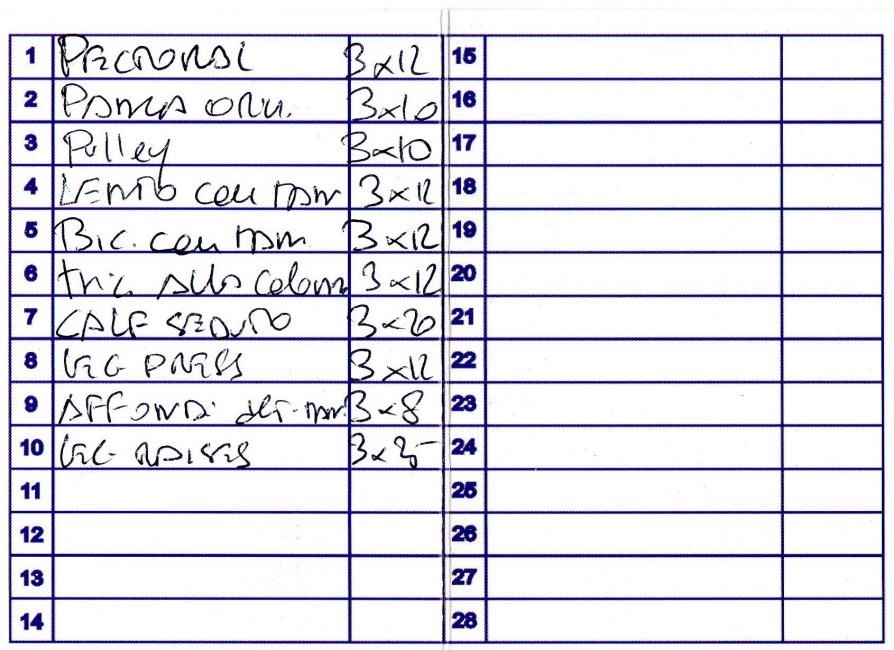 1 PECTORAL 3x12
2 PANCA ORIZ. 3x10
3 Pulley 3x10
4 LENTO con MAN 3x12
5 Bic. con MAN 3x12
6 tric. ALLA Colonna 3x12
7 CALF SEDUTO 3x20
8 LEG PRESS 3x12
9 AFFONDI 3x8
10 LEG RAISES 3x25
11
12
13
14
15
16
17
18
19
20
21
22
23
24
25
26
27
28